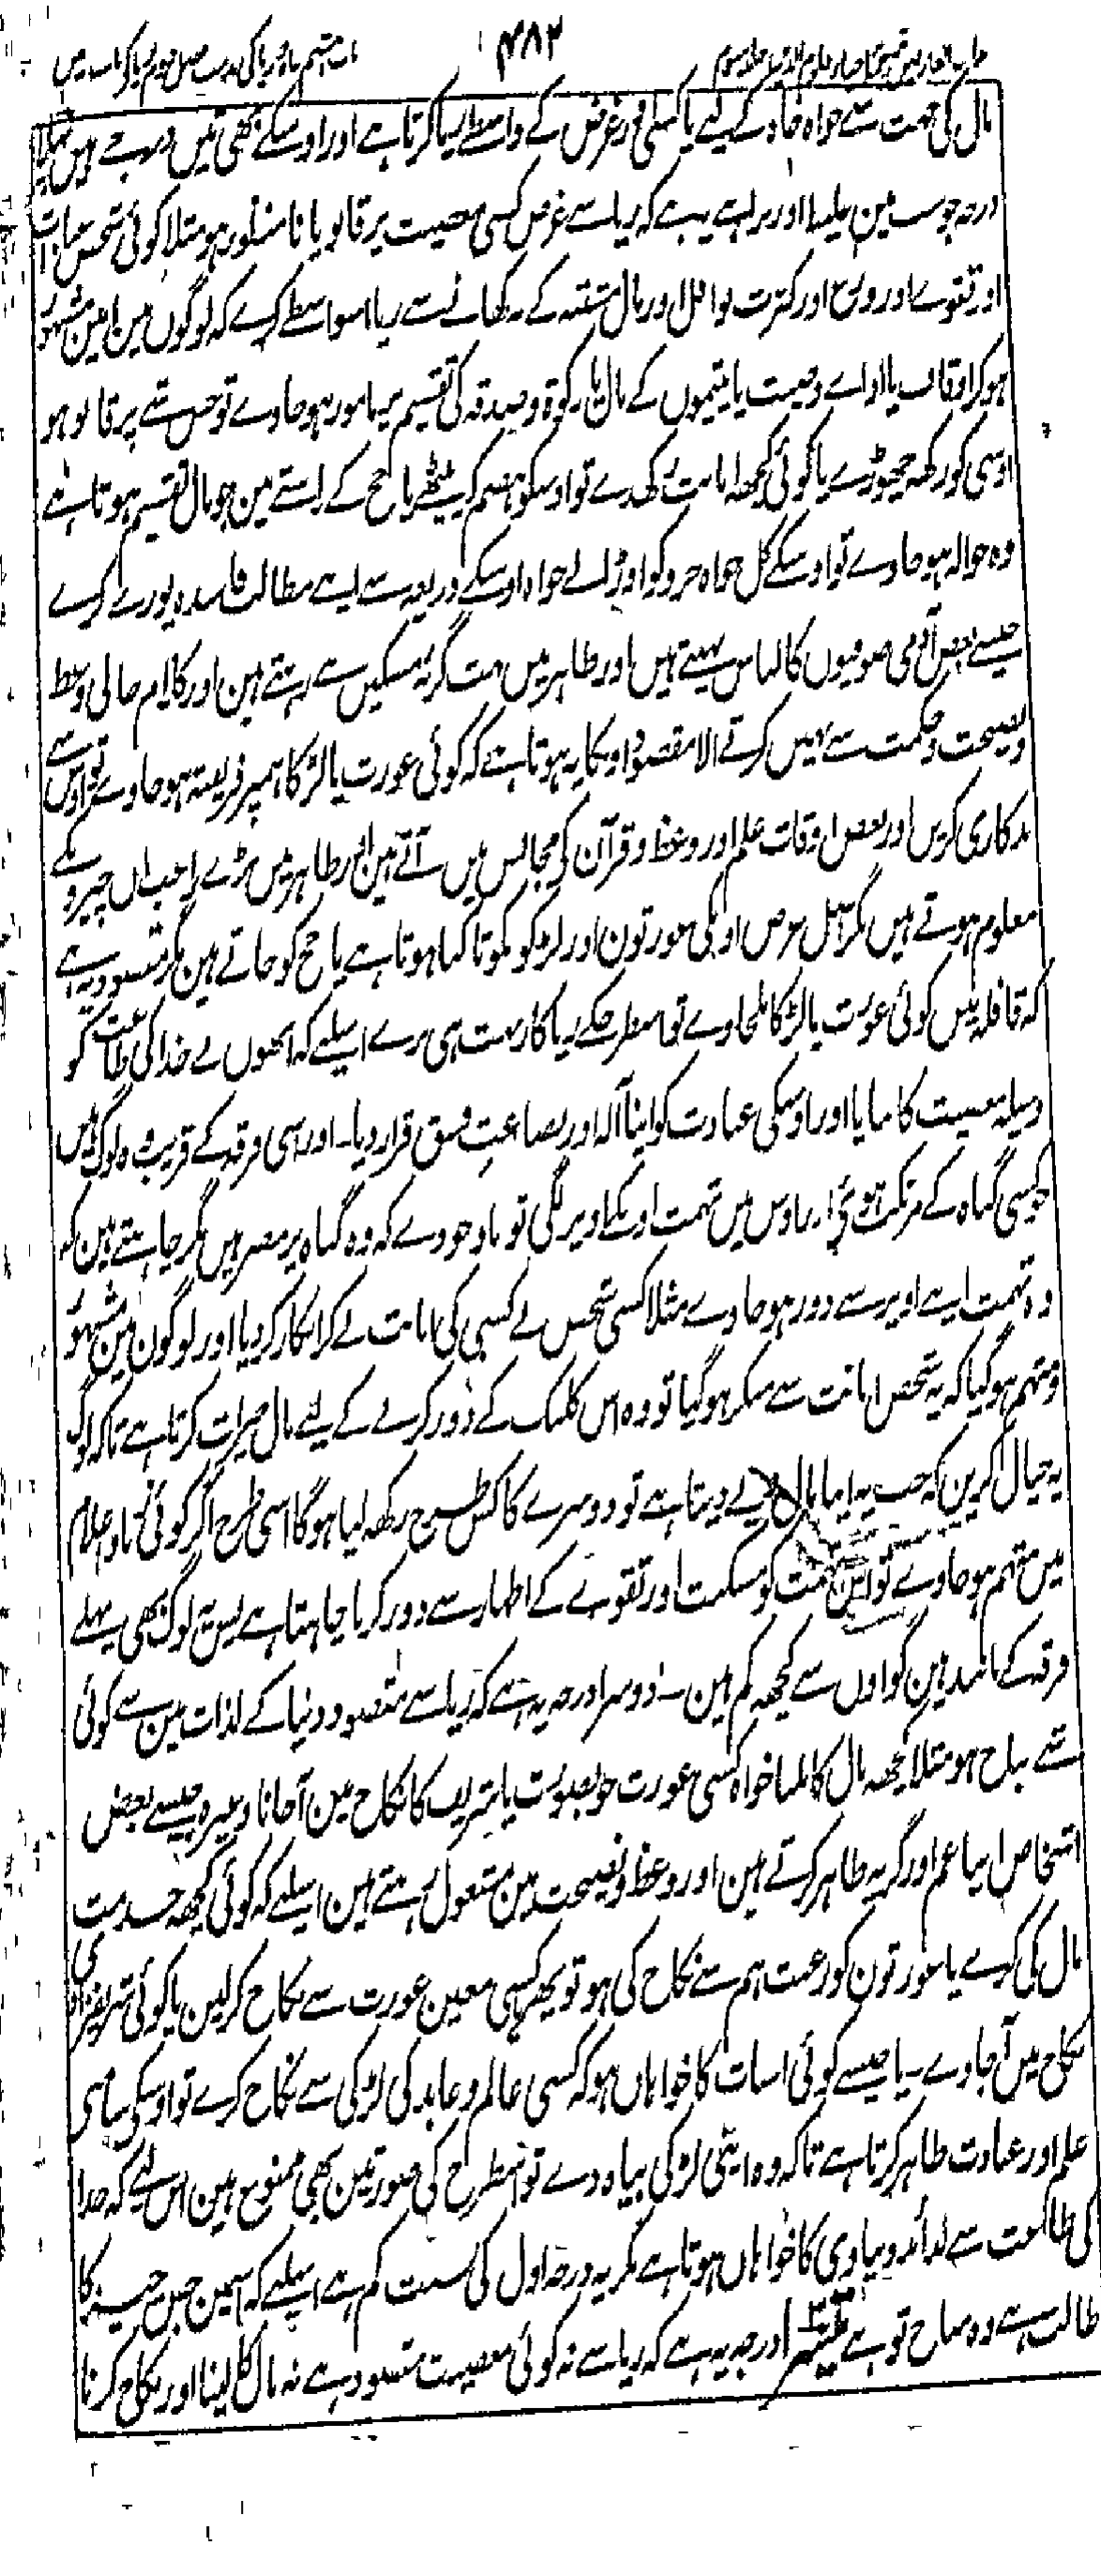 ۴۸۲
مال کی جہت سے خواہ جاہ کے لیے یا کسی اور غرض کے واسطے ریا کرتا ہے اور اوسکے بھی تین درجے ہیں پہلا
درجہ جو سب مین بڑا ہے یہ ہے کہ ریا سے غرض کسی معصیت پر قابو پانا منظور ہو مثلا کوئی شخص
اور تقوے اور ورع اور کثرت نوافل اور مال مشتبہ کے نہ کھانے سے ریا اسواسطے کرے کہ لوگوں مین امین مشہور
ہو کر اوقاف یا اداے وصیت یا یتیموں کے مال یا زکوۃ و صدقہ کی تقسیم پر مامور ہو جاوے تو جس شے پر قابو ہو
اوسی کو رکھ چھوڑے یا کوئی کچھ امانت رکھدے تو اوسکو ہضم کر بیٹھے یا حج کے راستے مین جو مال تقسیم ہوتا ہے
وہ حوالہ ہو جاوے تو اوسکے کل خواہ جزو کو اوڑا لے خواہ اوسکے ذریعہ سے اپنے مطالب فاسدہ پورے کرے
جیسے بعض آدمی صوفیوں کا لباس پہنتے ہیں اور ظاہر میں مسکین سے رہتے ہین اور کلام خالی وعظ
و نصیحت و حکمت سے نہیں کرتے الا مقصود اونکا یہ ہوتا ہے کہ کوئی عورت یا لڑکا ہمپر فریفتہ ہو جاوے تو اوس سے
بدکاری کریں اور بعض اوقات علم اور وعظ و قرآن کی مجالس میں آتے ہین اور ظاہر میں بڑے راغب ان چیزونکے
معلوم ہوتے ہیں مگر اصل غرض اونکی عورتون اور لڑکوں کو تاکنا ہوتا ہے یا حج کو جاتے ہین مگر مقصود یہ ہے
کہ قافلہ میں کوئی عورت یا لڑکا ملجاوے تو اسطرحکے ریاکار بہت ہی برے اسلیے کہ انھوں نے خدا کی طاعت کو
وسیلہ معصیت کا بنایا اور اوسکی عبادت کو اپنا آلہ اور بضاعت فسق قرار دیا۔ اور اسی فرقہ کے قریب وہ لوگ ہیں
جو کسی گناہ کے مرتکب ہوئے اور اوس میں تہمت اونکے اوپر لگی تو باوجودے کہ وہ گناہ پر مصر ہیں مگر چاہتے ہین کہ
وہ تہمت اپنے اوپر سے دور ہو جاوے مثلا کسی شخص نے کسی کی امانت لے کر انکار کر دیا اور لوگون مین مشہور
و متہم ہو گیا کہ یہ شخص امانت سے منکر ہو گیا تو وہ اس کلنک کے دور کرنے کے لیے مال خیرات کرتا ہے تاکہ لوگ
یہ خیال کرین کہ جب یہ اپنا مال دیے دیتا ہے تو دوسرے کا کس طرح رکھ لیا ہوگا اسی طرح اگر کوئی
میں متہم ہو جاوے تو اس تہمت کو مسکنت اور تقوے کے اظہار سے دور کرنا چاہتا ہے پس یہ لوگ بھی پہلے
فرقہ کے مانند ہین گو اون سے کچھ کم ہین ۔ دوسرا درجہ یہ ہے کہ ریا سے مقصود دنیا کے لذات مین سے کوئی
شے مباح ہو مثلا کچھ مال کا ملنا خواہ کسی عورت خوبصورت یا شریف کا نکاح مین آجانا وغیرہ جیسے بعض
اشخاص اپنا غم اور گریہ ظاہر کرتے ہین اور وعظ و نصیحت مین مشغول رہتے ہین اسلیے کہ کوئی کچھ خدمت
مال کی کرے یا عورتون کو رغبت ہم سے نکاح کی ہو تو پھر کسی معین عورت سے نکاح کرلین یا کوئی شریف
نکاح میں آجاوے۔ یا جیسے کوئی اس بات کا خواہاں ہو کہ کسی عالم و عابد کی لڑکی سے نکاح کرے تو اوسکے سامنے
علم اور عبادت ظاہر کرتا ہے تاکہ وہ اپنی لڑکی بیاہ دے تو اسطرح کی صورتین بھی ممنوع ہین اس لیے کہ خدا
کی طاعت سے لذائذ دنیاوی کا خواہاں ہوتا ہے مگر یہ درجہ اول کی نسبت کم ہے اسلیے کہ اسمین جس چیز کا
طالب ہے وہ مباح تو ہے تیسرا درجہ یہ ہے کہ ریا سے نہ کوئی معصیت مقصود ہے نہ مال کا لینا اور نکاح کرنا